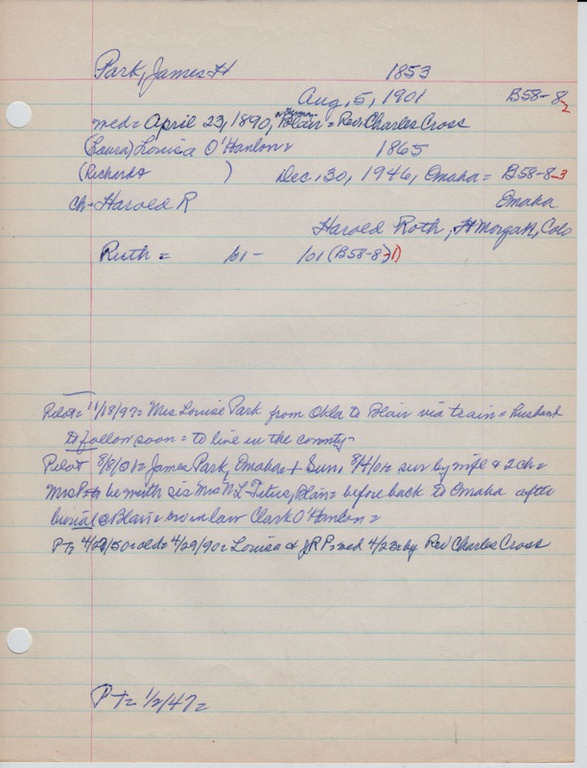 Park, James H 1853
Aug, 5, 1901 B58-8-2
med= April 23, 1890, Blair = Rev Charles Cross
(Laura) Louisa O'Hanlon= 1865
(Richard & ) Dec, 30, 1946, Omaha = B58-8-3
Ch- Harold R Omaha
Harold Roth, Ft Morgan, Colo
Ruth = /61 - /01 (B58-8-1)
Pilot= 11/18/97= Mrs Louise Park from Okla to Blair via train = husband
to follow soon = to live in the county-
Pilot 8/8/01= James Park, Omaha + Sun, 8/4/01= sur by wife & 2 ch=
Mrs P to be with sis Mrs W L Titus, Blair= before back to Omaha after
burial @ Blair= bro in law Clark O'Hanlon=
PT= 4/50 old= 4/29/90= Louisa & J R P= med 4/23 by Rev Charles Cross
PT= 1/2/47=